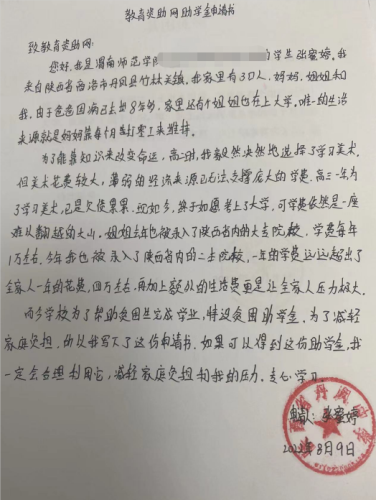 教育资助网助学金申请书
致教育资助网:
您好,我是渭南师范学院 的学生张蜜婷。我
来自陕西省商洛市丹凤县竹林关镇。我家里有3口人,妈妈,姐姐和
我,由于爸爸因病已去世8年多,家里还有个姐姐也在上大学。唯一的生活
来源就是妈妈靠每月打零工来维持。
为了靠着知识来改变命运,高二时,我毅然决然地选择了学习美术,
但美术花费较大,薄弱的经济来源已无法支撑庞大的学费。高三一年为
了学习美术,已是欠债累累。现如今,终于如愿考上了大学,可学费依然是一座
难以翻越的大山。姐姐去年也被录入了陕西省内的大专院校,学费每年
1万左右,今年我也被录入了陕西省内的二本院校,一年的学费远远超出了
全家人一年的花费,四万左右,再加上额外的生活费更是让全家人压力极大。
而今学校为了帮助贫困生完成学业,特设贫困助学金,为了减轻
家庭负担,所以我写下了这份申请书,如果可以得到这份助学金,我
一定会合理利用它,减轻家庭负担和我的压力。专心学习。
张蜜婷
8月9日